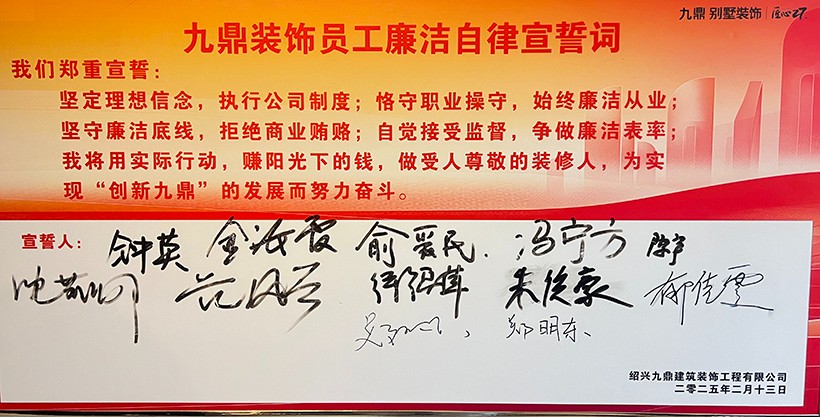 九鼎 别墅装饰
九鼎装饰员工廉洁自律宣誓词
我们郑重宣誓：
坚定理想信念，执行公司制度；恪守职业操守，始终廉洁从业；
坚守廉洁底线，拒绝商业贿赂；自觉接受监督，争做廉洁表率；
我将用实际行动，赚阳光下的钱，做受人尊敬的装修人，为实
现“创新九鼎”的发展而努力奋斗。
宣誓人：钟英 金海霞 俞爱民 冯宁方
朱俊豪 柳佳雯
郑明东
绍兴九鼎建筑装饰工程有限公司
二零二五年二月十三日